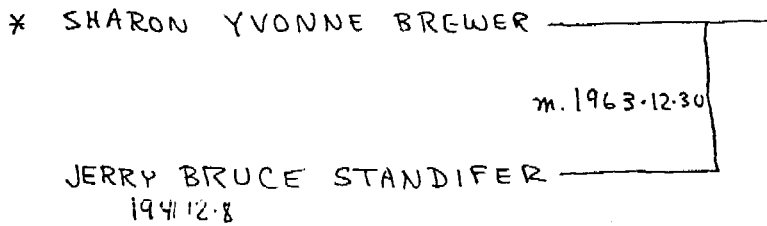 * SHARON YVONNE BREWER
m. 1963.12.30
JERRY BRUCE STANDIFER
1941 12.8